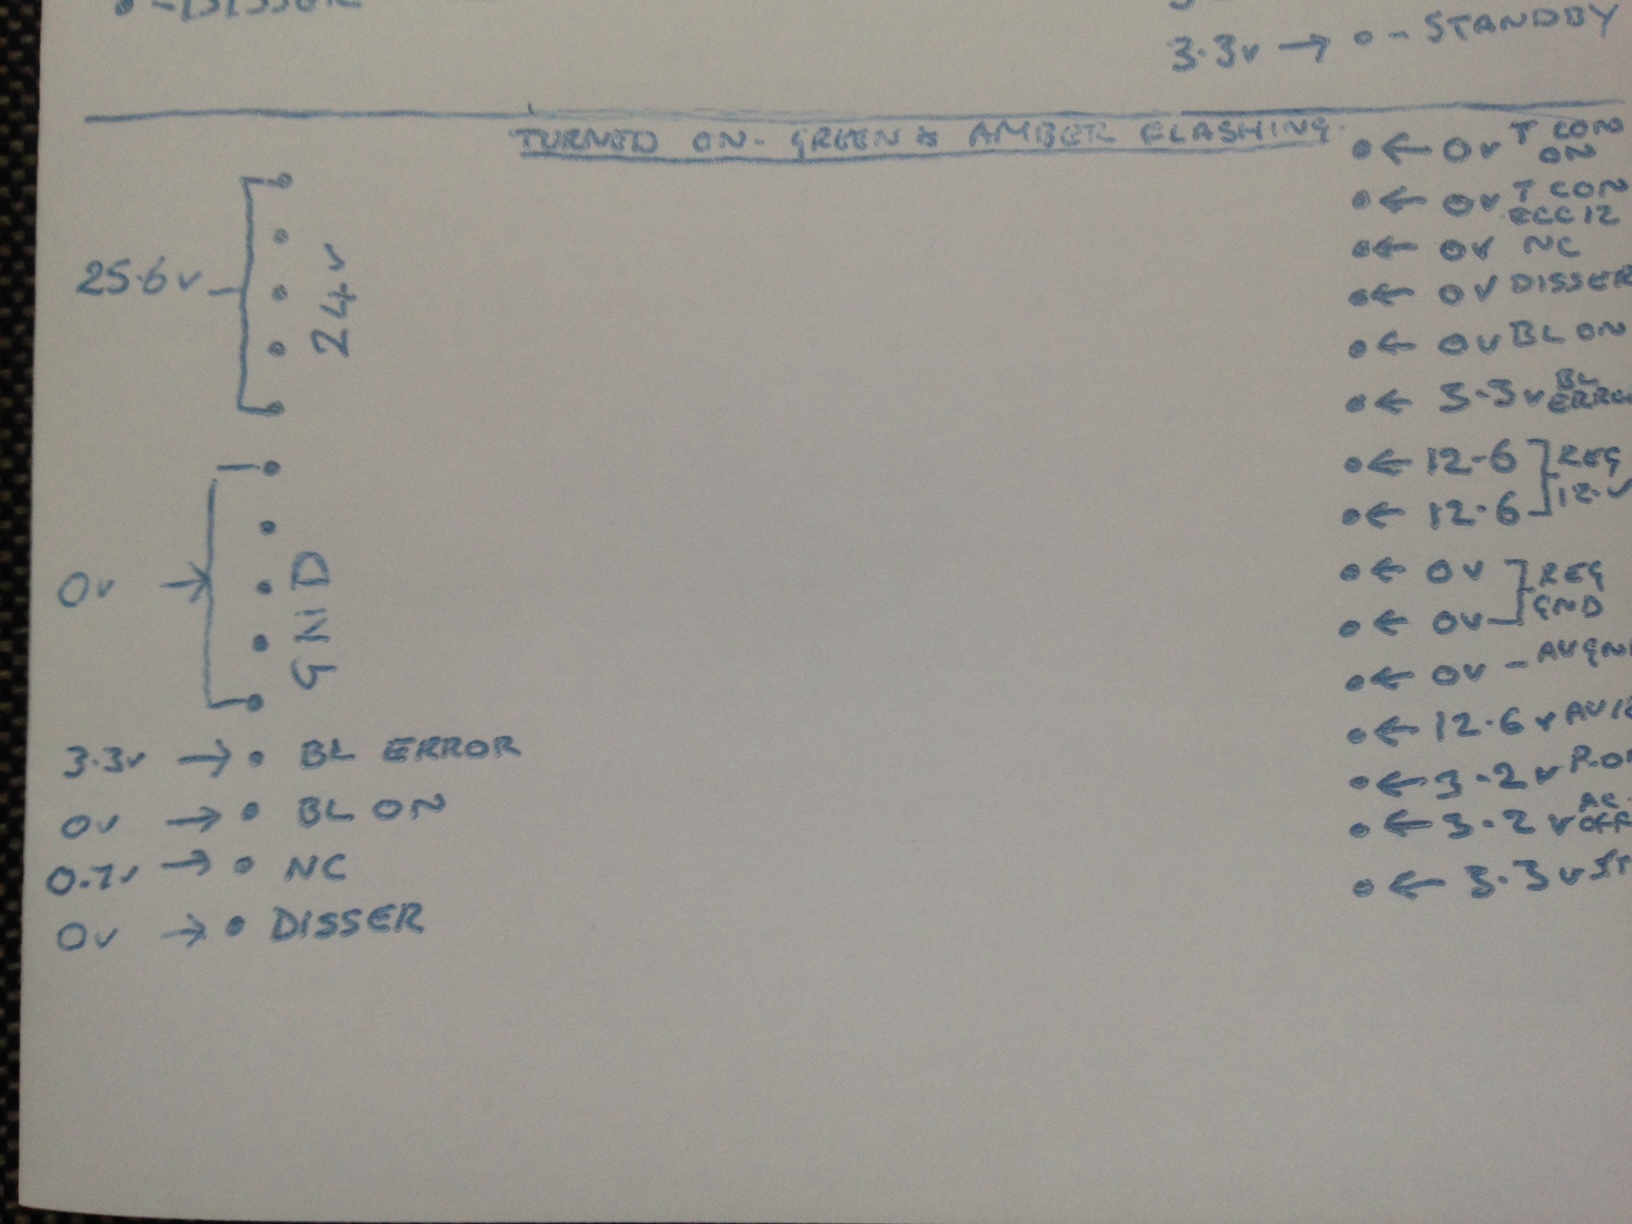 3.3v → • - STANDBY
TURNED ON - GREEN & AMBER FLASHING
25.6v
24v
0v →
GND
3.3v → • BL ERROR
0v → • BL ON
→ • NC
0v → • DISSER
• ← 0v T CON
ON
• ← 0v T CON
• ← 0v NC
• ← 0v DISSER
• ← 0v BL ON
• ← 3.3v BL
• ← 12.6 REG
• ← 12.6 12.v
• ← 0v REG
• ← 0v GND
• ← 0v -
• ← 12.6v
• ← 3.2v
• ← 3.2v AC.
OFF
• ← 3.3v